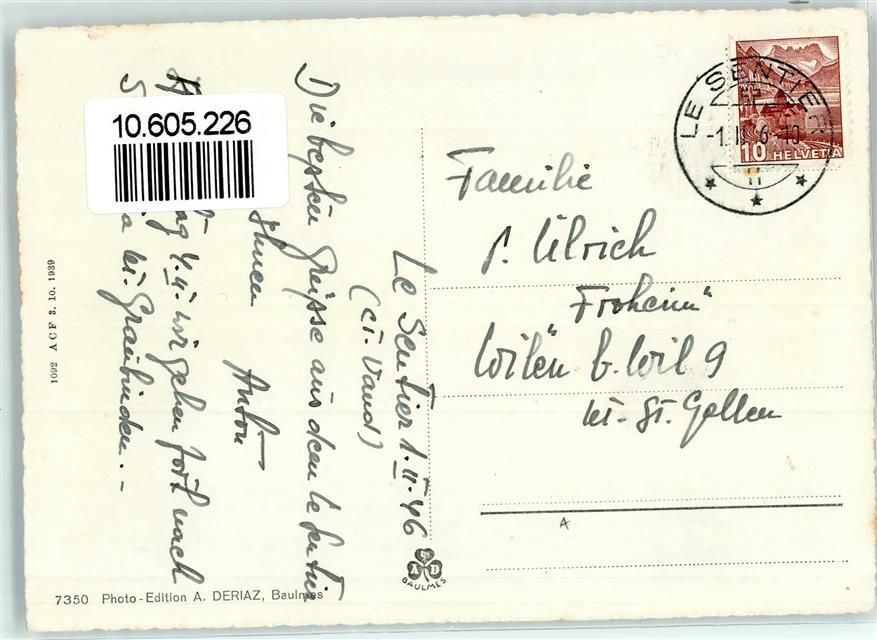 Le Sentier 1.II.46
(ct. Vaud)
Die besten Grüsse aus dem le Sentier
Ihnen Anton
ag 4.II. wir gehen fort nach
a kt. Graubünden.-
Familie
P. Ulrich
"Froheim"
Wilen b. Wil 9
kt. St. Gallen
LE SENTIER
-1.II 46-10
10 HELVETIA
10.605.226
1092 A C F 3. 10. 1939
7350 Photo-Edition A. DERIAZ, Baulmes
A D
BAULMES
A